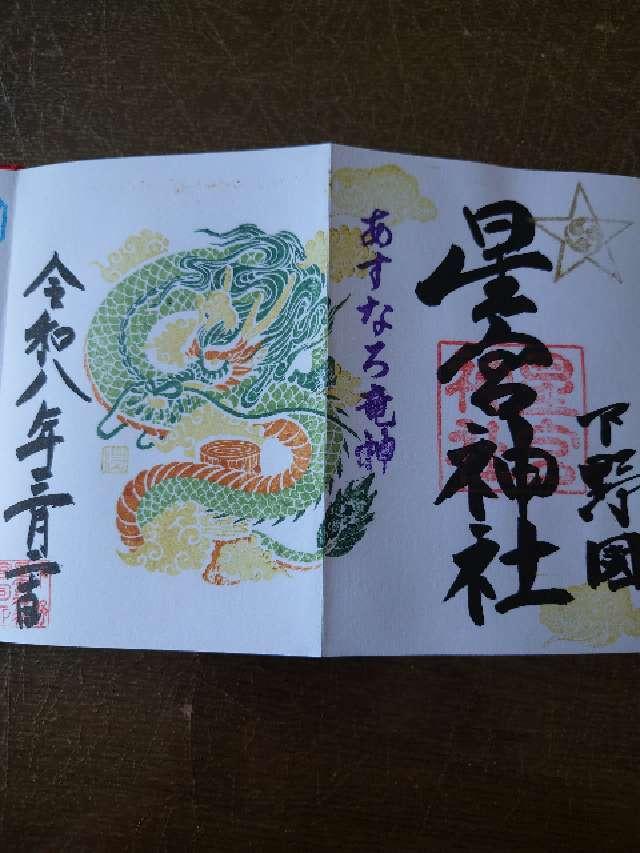 下野国
星宮神社
あすなろ竜神
令和八年三月二吉日